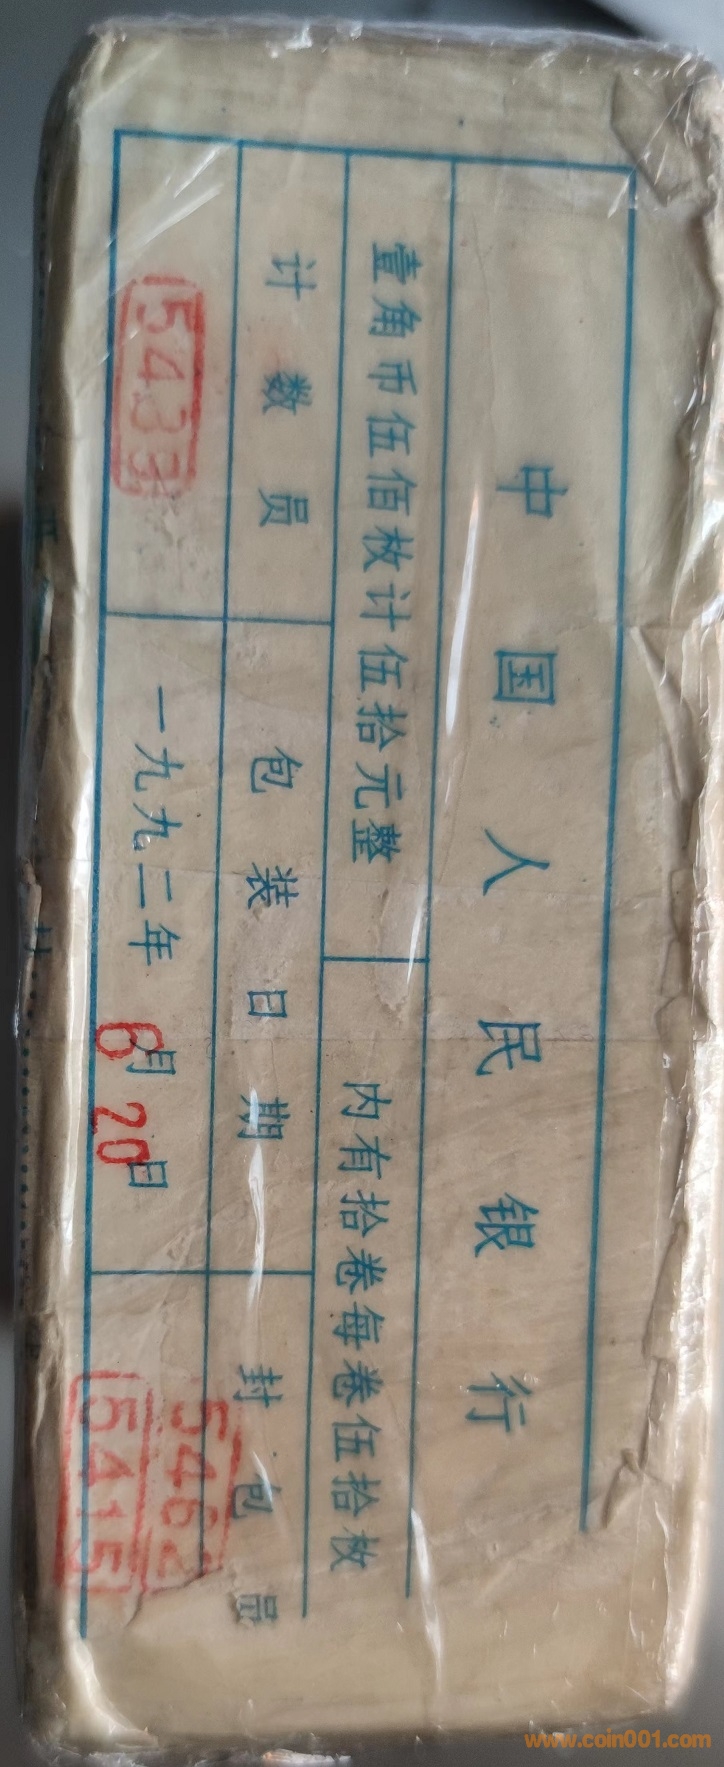 中国人民银行
壹角币伍佰枚计伍拾元整 内有拾卷每卷伍拾枚
计数员 包装日期 封包员
5433 一九九二年6月20日 5462
5415
www.coin001.com